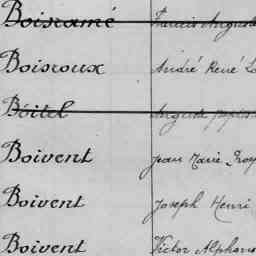 Boisramé Francis Auguste
Boisroux André René
Boitel Auguste
Boivent Jean Marie
Boivent Joseph Henri
Boivent Victor Alphons